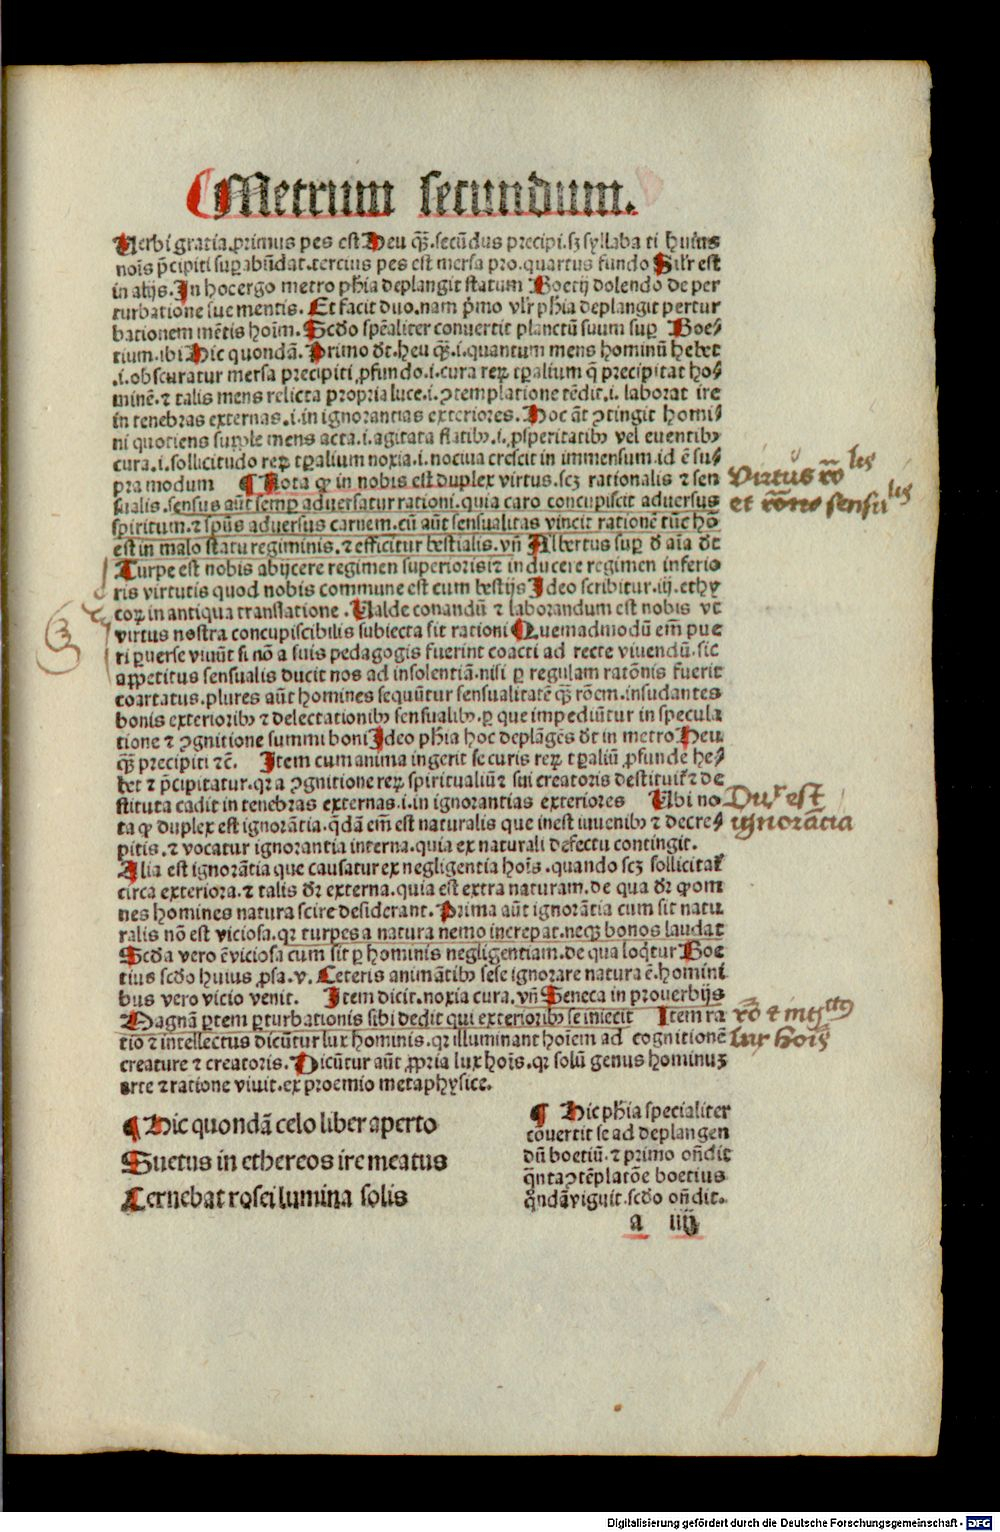 Metrum secundum.
Uerbi gratia.primus pes est Heu qꝫ̄.secūdus precipi.sꝫ syllaba ti huius
noīs p̄cipiti suꝑabūdat.tercius pes est mersa pro.quartus fundo Sil'r est
in alijs.In hoc ergo metro ph̄ia deplangit statum Boetij dolendo de per
turbatione sue mentis. Et facit duo.nam p̄mo vl'r ph̄ia deplangit pertur
bationem mētis hoīm. Scd̄o spēaliter conuertit planctū suum suꝑ Boe⸗
tium.ibi Hic quondā. Primo d̄t.heu qꝫ̄.i.quantum mens hominū hebet
.i.obscuratur mersa precipiti ꝓfundo.i.cura reꝝ tꝑalium q̄ precipitat ho⸗
minē.⁊ talis mens relicta propria luce.i.ꝯtemplatione tēdit.i. laborat ire
in tenebras externas.i.in ignorantias exteriores. Hoc āt ꝯtingit homi⸗
ni quotiens sup̱le mens acta.i.agitata flatibꝫ.i.ꝓsperitatibꝫ vel euentibꝫ
cura.i.sollicitudo reꝝ tꝑalium noxia.i.nociua crescit in immensum.id ē su⸗
pra modum ¶ Nota ꝙ in nobis est duplex virtus.scꝫ rationalis ⁊ sen
sualis.sensus aūt semꝑ aduersatur rationi.quia caro concupiscit aduersus
spiritum.⁊ spūs aduersus carnem.cū aūt sensualitas vincit rationē tūc hō
est in malo statu regiminis.⁊ efficitur bestialis.vn̄ Albertus suꝑ d̄ aīa d̄t
Turpe est nobis abijcere regimen superioris ⁊ inducere regimen inferio
ris virtutis quod nobis commune est cum bestijs Ideo scribitur.iij.ethy
coꝝ in antiqua translatione .Ualde conandū ⁊ laborandum est nobis vt
virtus nostra concupiscibilis subiecta sit rationi Quemadmodū em̄ pue
ri ꝑuerse viuūt si nō a suis pedagogis fuerint coacti ad recte viuendū.sic
appetitus sensualis ducit nos ad insolentiā.nisi ꝑ regulam ratōnis fuerit
coartatus.plures aūt homines sequūtur sensualitatē qꝫ̄ rōem.insudantes
bonis exterioribꝫ ⁊ delectationibꝫ sensualibꝫ.ꝑ que impediūtur in specula
tione ⁊ ꝯgnitione summi boni Ideo ph̄ia hoc deplāgēs d̄t in metro Heu
qꝫ̄ precipiti ⁊c̄. Item cum anima ingerit se curis reꝝ tꝑaliū ꝓfunde he⸗
bet ⁊ p̄cipitatur.qꝛ a ꝯgnitione reꝝ spiritualiū ⁊ sui creatoris destituit᷑ ⁊ de
stituta cadit in tenebras externas.i.in ignorantias exteriores Ubi no
ta ꝙ duplex est ignorātia.q̄dā em̄ est naturalis que inest iuuenibꝫ ⁊ decre⸗
pitis.⁊ vocatur ignorantia interna.quia ex naturali defectu contingit.
Alia est ignorātia que causatur ex negligentia hoīs.quando scꝫ sollicitat᷑
circa exteriora.⁊ talis d̄r externa.quia est extra naturam.de qua d̄r ꝙ om
nes homines natura scire desiderant. Prima aūt ignorātia cum sit natu
ralis nō est viciosa.qꝛ turpes a natura nemo increpat.neqꝫ bonos laudat
Scd̄a vero ē viciosa cum sit ꝑ hominis negligentiam.de qua loq̄tur Boe
tius scd̄o huius ꝓsa.v. Ceteris animātibꝫ sese ignorare natura ē.homini
bus vero vicio venit. Item dicit.noxia cura.vn̄ Seneca in prouerbijs
Magnā ꝑtem ꝑturbationis sibi dedit qui exterioribꝫ se iniecit Item ra
tio ⁊ intellectus dicūtur lux hominis.qꝛ illuminant hoīem ad cognitionē
creature ⁊ creatoris. Dicūtur aūt ꝓpria lux hoīs.qꝛ solū genus hominuꝫ
arte ⁊ ratione viuit.ex proemio metaphysice.
Virtus rō les
et rōne sensua lis
Dux est
ignorātia
rō ⁊ intꝫ ctus
lux hoīs
¶ Hic quondā celo liber aperto
Suetus in ethereos ire meatus
Cernebat rosei lumina solis
¶ Hic ph̄ia specialiter
cōuertit se ad deplangen
dū boetiū.⁊ primo on̄dit
q̄nta ꝯtēplatōe boetius
q̄ndā viguit.scd̄o on̄dit.
a iiij
Digitalisierung gefördert durch die Deutsche Forschungsgemeinschaft - DFG